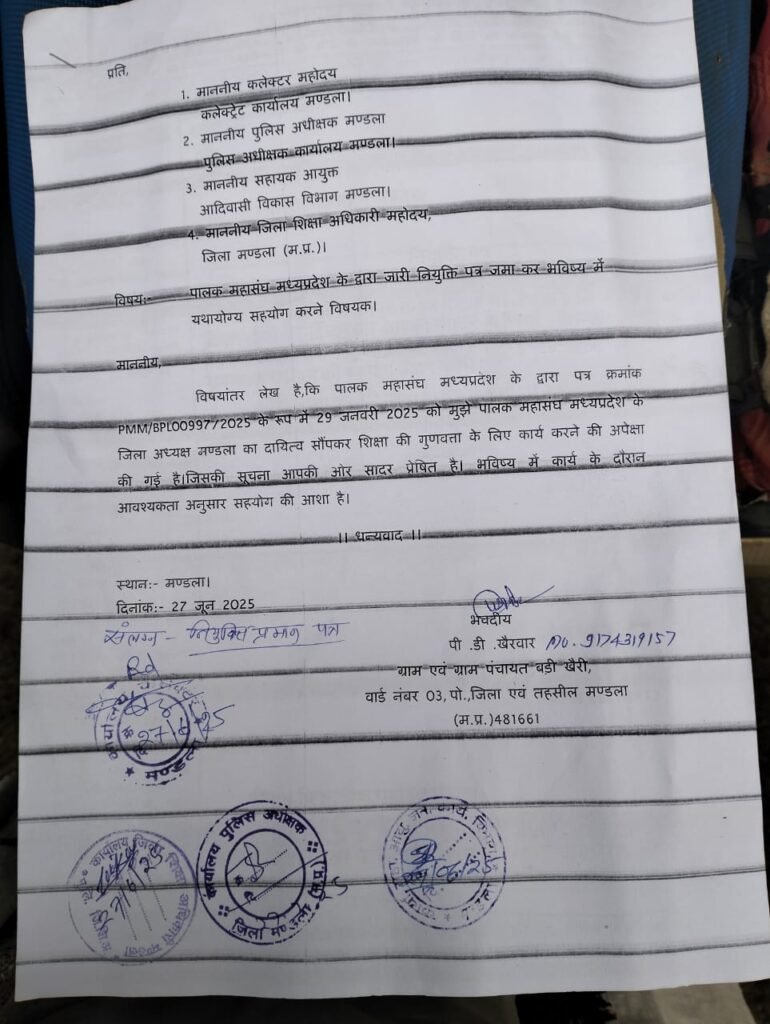 प्रति,
1. माननीय कलेक्टर महोदय
कलेक्ट्रेट कार्यालय मण्डला।
2. माननीय पुलिस अधीक्षक मण्डला
पुलिस अधीक्षक कार्यालय मण्डला।
3. माननीय सहायक आयुक्त
आदिवासी विकास विभाग मण्डला।
4. माननीय जिला शिक्षा अधिकारी महोदय,
जिला मण्डला (म.प्र.)।
विषय:- पालक महासंघ मध्यप्रदेश के द्वारा जारी नियुक्ति पत्र जमा कर भविष्य में
यथायोग्य सहयोग करने विषयक।
माननीय,
विषयांतर लेख है,कि पालक महासंघ मध्यप्रदेश के द्वारा पत्र क्रमांक
PMM/BPL00997/2025 के रूप में 29 जनवरी 2025 को मुझे पालक महासंघ मध्यप्रदेश के
जिला अध्यक्ष मण्डला का दायित्व सौंपकर शिक्षा की गुणवत्ता के लिए कार्य करने की अपेक्षा
की गई है।जिसकी सूचना आपकी ओर सादर प्रेषित है। भविष्य में कार्य के दौरान
आवश्यकता अनुसार सहयोग की आशा है।
।। धन्यवाद ।।
स्थान:- मण्डला।
दिनांक:- 27 जून 2025
संलग्न - नियुक्ति प्रमाण पत्र
भवदीय
पी .डी .खैरवार Mo. 9174319157
ग्राम एवं ग्राम पंचायत बड़ी खैरी,
वार्ड नंबर 03,पो.,जिला एवं तहसील मण्डला
(म.प्र.)481661
Rd
मण्डला
कार्यालय जिला शिक्षा अधिकारी
कार्यालय पुलिस अधीक्षक
जिला मण्डला (म.प्र.)